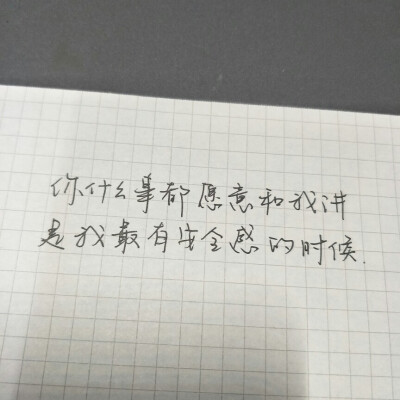 你什么事都愿意和我讲
是我最有安全感的时候.